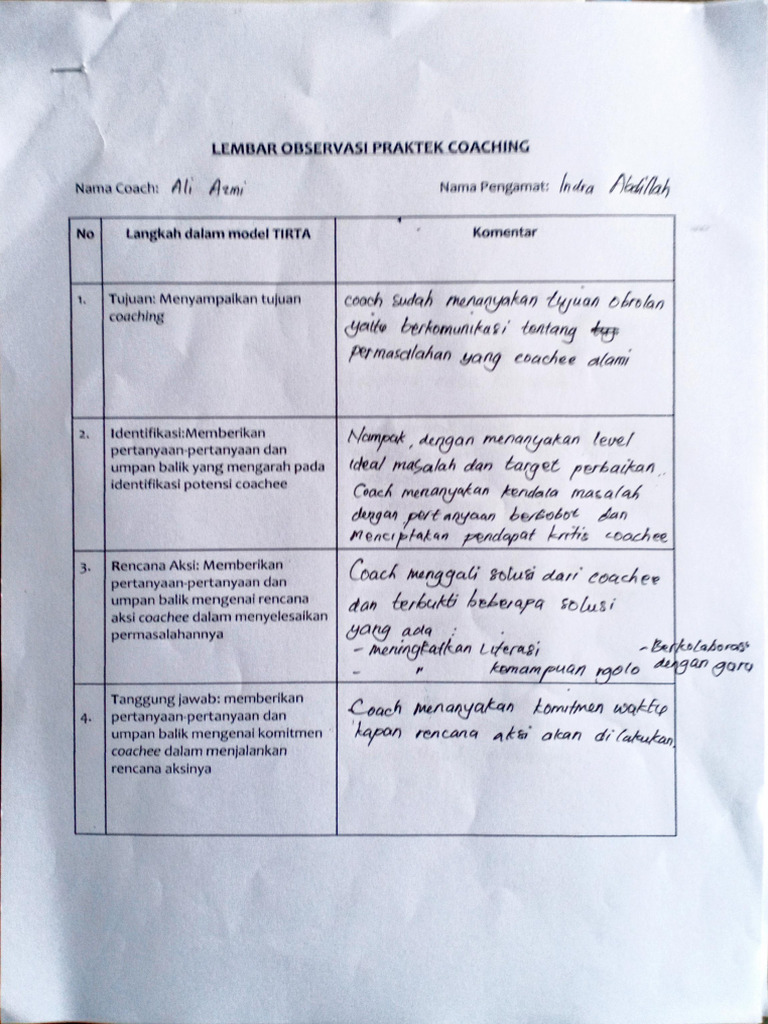 LEMBAR OBSERVASI PRAKTEK COACHING
Nama Coach: Ali Azmi
Nama Pengamat: Indra Abdillah
No
Langkah dalam model TIRTA
Komentar
1.
Tujuan: Menyampaikan tujuan
coaching
coach sudah menanyakan tujuan obrolan
yaitu berkomunikasi tentang
permasalahan yang coachee alami
2.
Identifikasi:Memberikan
pertanyaan-pertanyaan dan
umpan balik yang mengarah pada
identifikasi potensi coachee
Nampak, dengan menanyakan level
ideal masalah dan target perbaikan.
Coach menanyakan kendala masalah
dengan pertanyaan berbobot dan
Menciptakan pendapat kritis coachee
3.
Rencana Aksi: Memberikan
pertanyaan-pertanyaan dan
umpan balik mengenai rencana
aksi coachee dalam menyelesaikan
permasalahannya
Coach menggali solusi dari coachee
dan terbukti beberapa solusi
yang ada :
- meningkatkan Literasi
- " kemampuan
- Berkolaborasi
dengan guru
4.
Tanggung jawab: memberikan
pertanyaan-pertanyaan dan
umpan balik mengenai komitmen
coachee dalam menjalankan
rencana aksinya
Coach menanyakan komitmen waktu
kapan rencana aksi akan dilakukan.